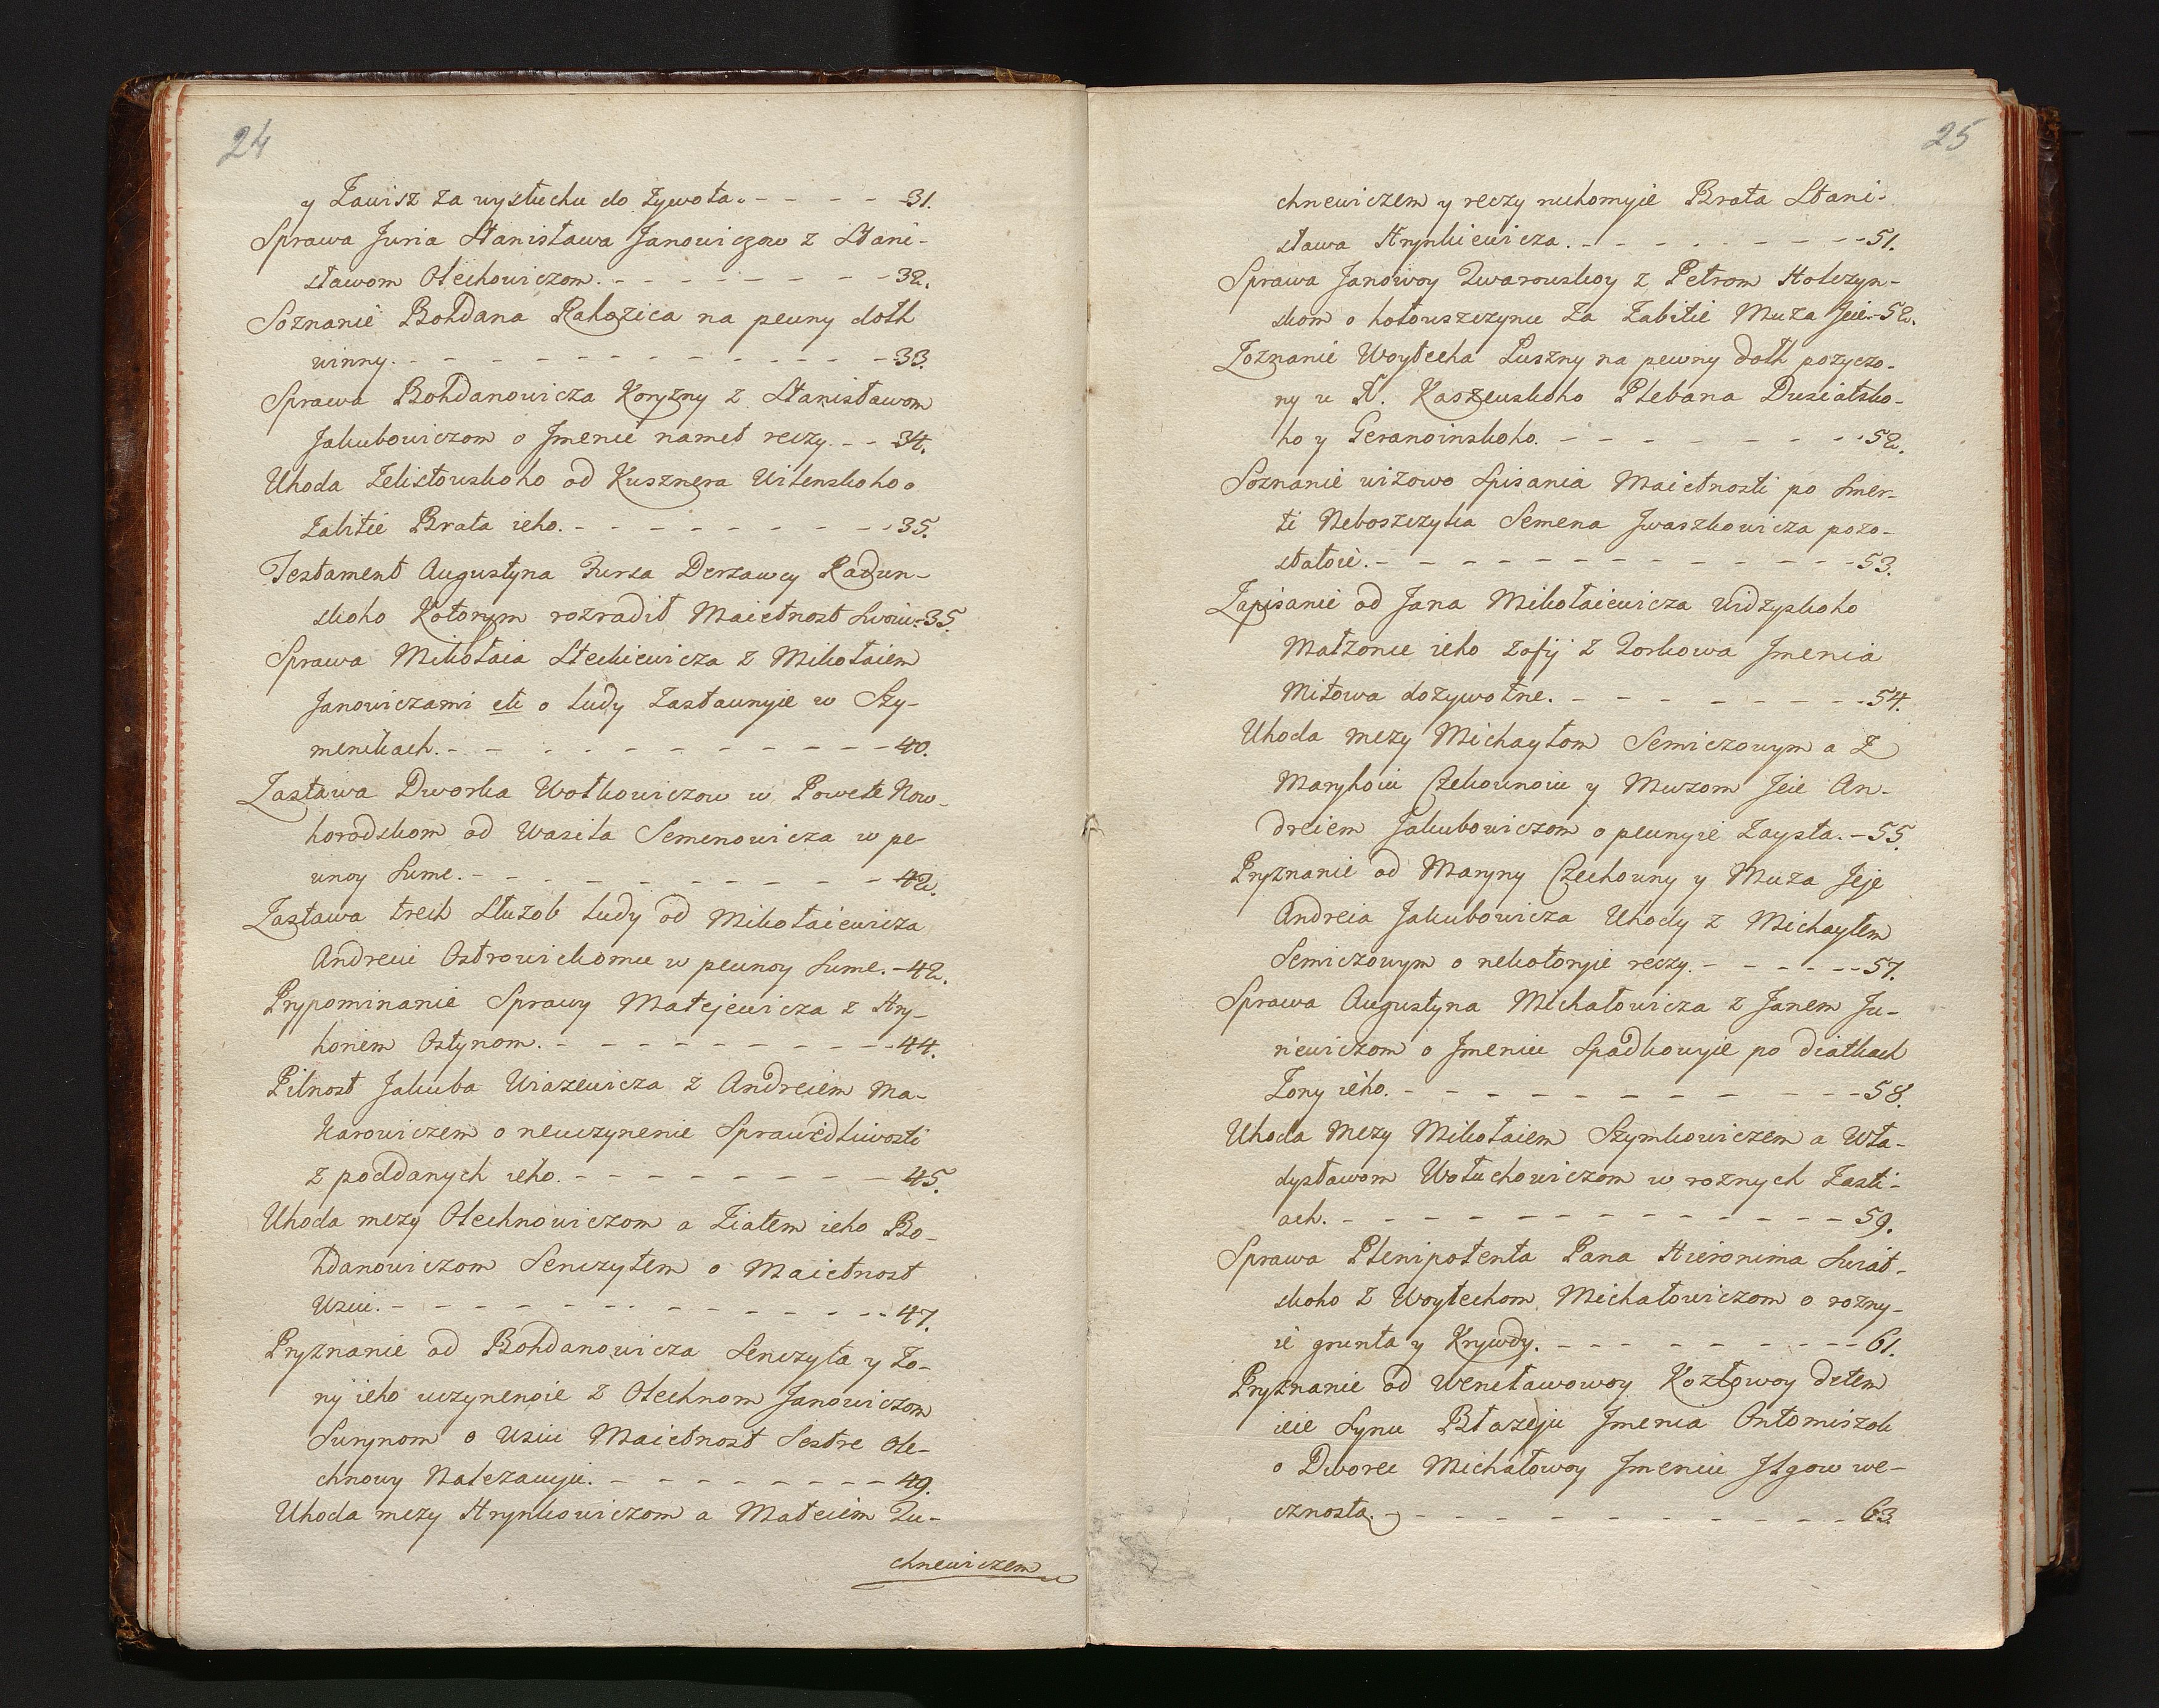 24
y Zawisz za wysłuchu do żywota. - - - - 31.
Sprawa Juria Stanisława Janowiczow z Stani-
sławom Olechowiczom. - - - - - - - 32.
Soznanie Bohdana Rahozica na pewny dołh
winny. - - - - - - - - - - - 33.
Sprawa Bohdanowicza Koryzny z Stanisławom
Jakubowiczom o Jmenie namet reczy. - - 34.
Uhoda Zelistowskoho od Kusznera Wilenskoho o
zabitie Brata ieho. - - - - - - - - - 35.
Testament Augustyna Fursa Derzawcy Radun-
skoho Kotorym rozradił Maietnost swoiu. 35.
Sprawa Mikołaia Steckiewicza z Mikołaiem
Janowiczami etc o ludy Zastawnyie w Szy-
menikach. - - - - - - - - - - - 40.
Zastawa Dworka Wołkowiczow w Powete Now-
horodskom od Wasila Semenowicza w pe-
wnoy Sume. - - - - - - - - - - 42.
Zastawa trech Służob ludy od Mikołaiewicza
Andreiu Ostrowickomu w pewnoy Sume. - 42.
Prypominanie Sprawy Matejewicza z Hry-
horiem Ostynom. - - - - - - - - - 44.
Pilnost Jakuba Wiazewicza z Andreiem Ma-
karowiczem o neuczynenie Sprawedliwosti
z poddanych ieho. - - - - - - - - 45.
Uhoda mezy Olechnowiczom a Ziatem ieho Bo-
hdanowiczom Senczyłem o Maietnost
Usiu. - - - - - - - - - - - - 47.
Pryznanie od Bohdanowicza Senczyła y Żo-
ny ieho uczynenoie z Olechnom Janowiczom
Surynom o Usiu Maietnost Sestre Ole-
chnowy Należauyiu. - - - - - - - - 49.
Uhoda mezy Hrynkowiczom a Mateiem Zu-
chnewiczem
25
chnewiczem y reczy ruchomyie Brata Stani-
sława Hrynkiewicza. - - - - - - - - - 51.
Sprawa Janowoy Zwarowskoy z Petrom Holszyn-
skom o hołowszczynu za Zabitie Muża Jeie - 52.
Zoznanie Woytecha Puszny na pewny dołh pożyczo-
ny u X. Kaszewskoho Plebana Dusiatsko-
ho y Geranoinskoho. - - - - - - - - - 52.
Soznanie wiżowo Spisania Maietnosti po Smer-
ti Neboszczyka Semena Jwaszkowicza pozo-
stałoie. - - - - - - - - - - - - 53.
Zapisanie od Jana Mikołaiewicza Widzyskoho
Małżonce ieho Zofij z Zorkowa Jmenia
Mitowa dożywotne. - - - - - - - - - 54.
Uhoda mezy Michayłom Semiczowym a Z
Marykoiu Czehownoiu y Mużom Jeie An-
dreiem Jakubowiczom o pewnyie Zaysta. - 55.
Pryznanie od Maryny Czechowny y Muża Jeje
Andreia Jakubowicza Uhody z Michayłem
Semiczowym o nekotoryie reczy. - - - - - 57.
Sprawa Augustyna Michałowicza z Janem Ju-
riewiczom o Jmeniu Spadkowyie po diatkach
Żony ieho. - - - - - - - - - - - 58.
Uhoda mezy Mikołaiem Szymkowiczem a Wła-
dysławom Wołuchowiczom w roznych Zasti-
ach. - - - - - - - - - - - - 59.
Sprawa Plenipotenta Pana Hieronima Swiat-
skoho z Woytechom Michałowiczom o rozny-
ie grunta y Krywdy. - - - - - - - - - 61.
Pryznanie od Wencławowoy Kozłowoy detem
ieie Synu Błażeju Jmenia Ontomiszok
o Dworce Michałowoy Jmeniu Jłgow we-
cznosta. - - - - - - - - - - 63.